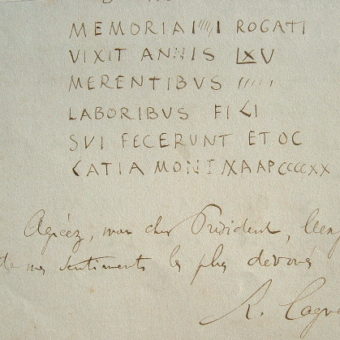 MEMORIAI ///// I ROGATI
VIXIT ANNIS LXV
MERENTIBVS /////
LABORIBVS FILI
SVI FECERVNT ET OC
CATIA MONTNXAAPCCCCXX
Agréez, mon cher Président, l'exp
de mes sentiments les plus dévoués
R. Cagn